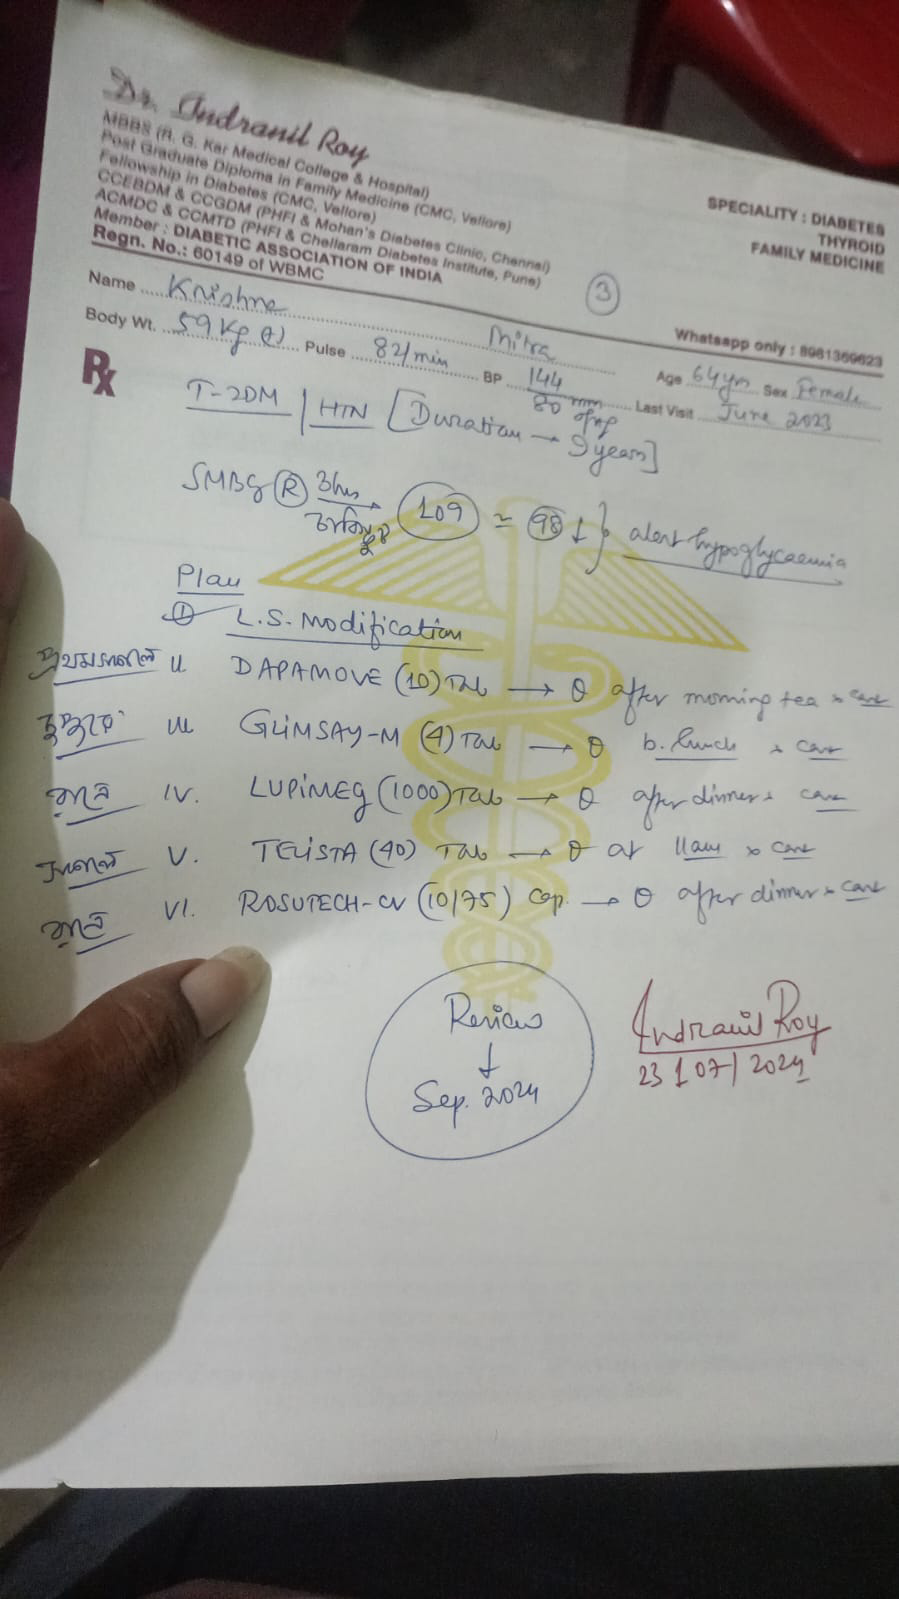 Dr. Indranil Roy
MBBS (R. G. Kar Medical College & Hospital)
Post Graduate Diploma in Family Medicine (CMC, Vellore)
Fellowship in Diabetes (CMC, Vellore)
CCEBDM & CCGDM (PHFI & Mohan's Diabetes Clinic, Chennai)
ACMDC & CCMTD (PHFI & Chellaram Diabetes Institute, Pune)
Member : DIABETIC ASSOCIATION OF INDIA
Regn. No.: 60149 of WBMC
SPECIALITY : DIABETES
THYROID
FAMILY MEDICINE
3
Whatsapp only : 8981369623
Name Krishna Mitra Age 64yrs Sex Female
Body Wt. 59 Kg Pulse 82/min BP 144/80 mm of Hg Last Visit June 2023
Rx
T-2DM / HTN [Duration → 9 years]
SMBG R 3hrs 109 98 ↓ } alert hypoglycaemia
Plan
I L.S. Modification
II DAPAMOVE (10) Tab → after morning tea x cont
III GLIMSAY-M (4) Tab → b. lunch x cont
রাত্রে IV. LUPIMEG (1000) Tab → after dinner x cont
সকালে V. TELISTA (40) Tab → at 11am x cont
রাত্রে VI. ROSUTECH-CV (10/75) Cap. → after dinner x cont
Review
↓
Sep. 2024
Indranil Roy
23/07/2024